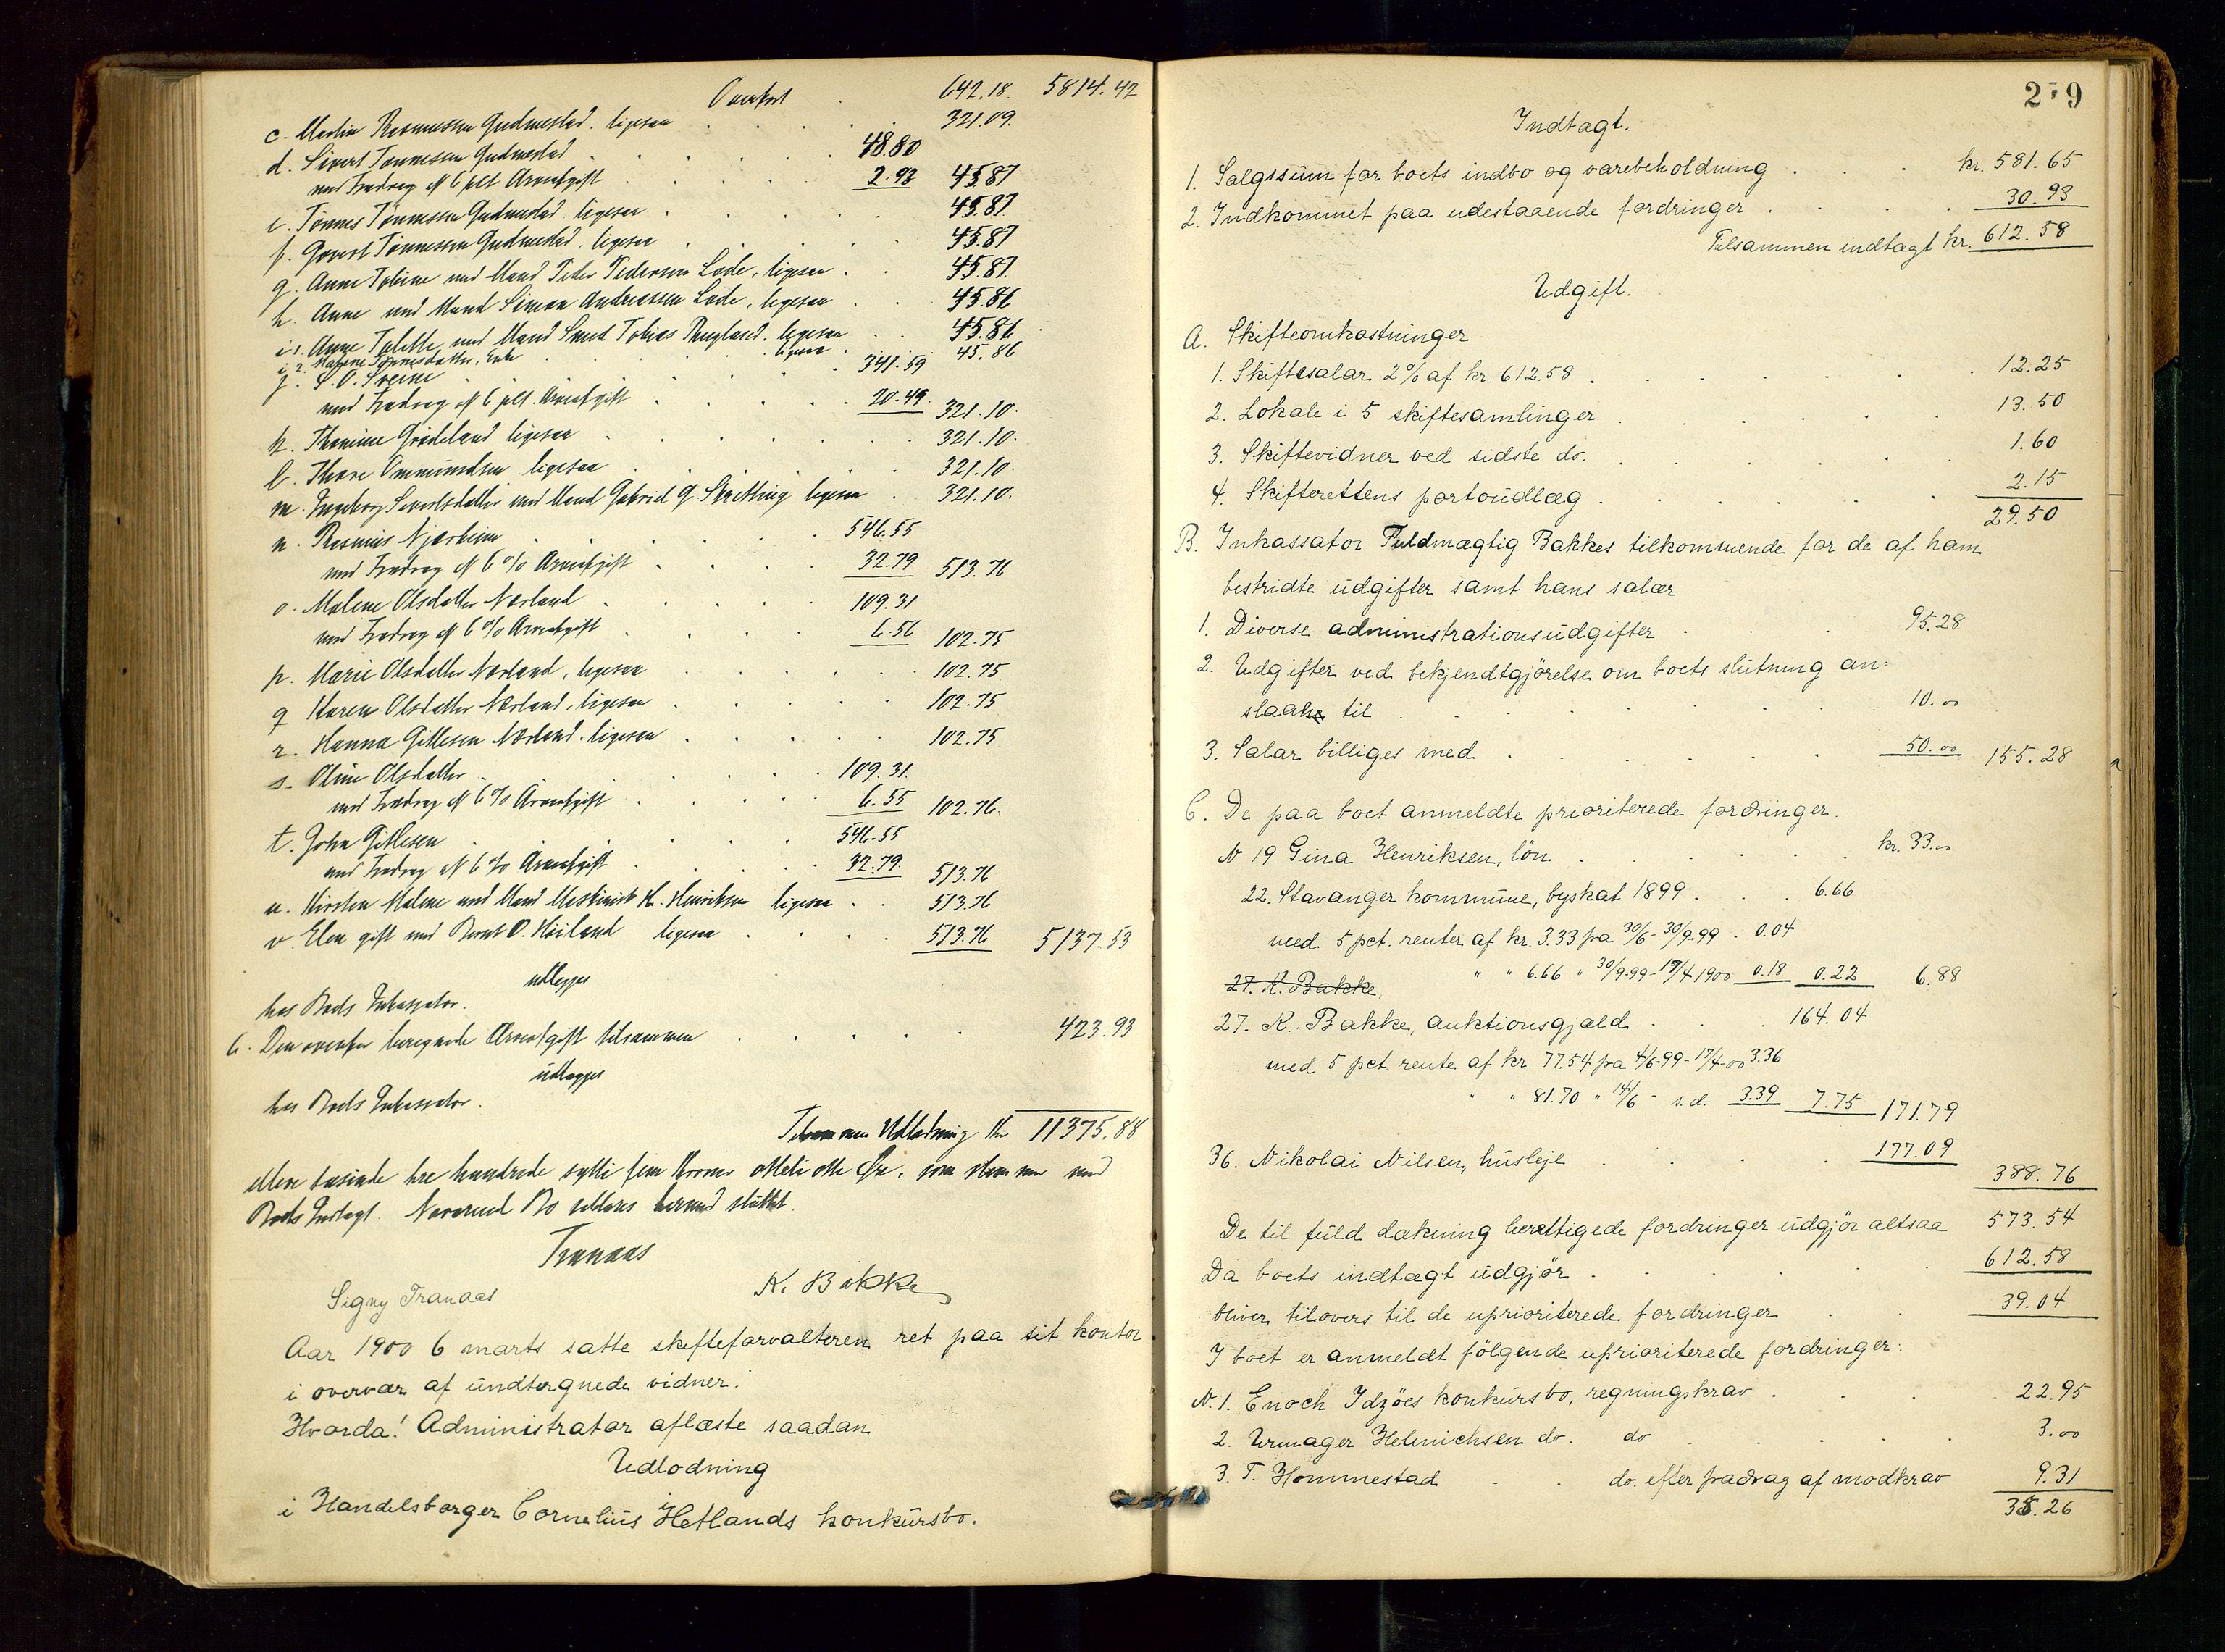 Overført 642.18. 5814.42
c. Martin Rasmussen Gudmestad. ligesaa 321.09.
d. Sivert Tønnessen Gudmestad 48.80
med Fradrag af 6 pCt Arveafgift 2.93 45.87
e. Tønnes Tønnessen Gudmestad ligesaa 45.87
f. Govert Tønnessen Gudmestad, ligesaa 45.87
g. Anne Tobine med Mand Peder Pedersen Lode, ligesaa 45.87.
h. Anne med Mand Simon Andreassen Lode, ligesaa 45.86
i 1. Anne Talette med Mand Svend Tobias ligesaa 45.86
i 2. Malene Tønnesdatter, Enke ligesaa 45.86
j. S. O. Sveine 341.59
med Fradrag af 6 pCt. Arveafgift 20.49. 321.10.
k. Thomine Grødeland ligesaa 321.10.
l. Thore Ommundsen ligesaa 321.10.
m. Ingeborg Sivertsdatter med Mand Gabriel G. Skretting ligesaa 321.10.
n. Rasmus Njærheim 546.55
med Fradrag af 6 % Arveafgift 32.79 513.76
o. Malene Olsdatter Nærland 109.31
med Fradrag af 6 % Arveafgift 6.56 102.75
p. Marie Olsdatter Nærland, ligesaa 102.75
q Karen Olsdatter Nærland, ligesaa 102.75
r. Hanna Gitlesen Nærland. ligesaa 102.75
s. Oline Olsdatter 109.31.
med Fradrag af 6 % Arveafgift 6.55 102.76.
t. John Gitlesen 546.55
med Fradrag af 6 % Arveafgift 32.79. 513.76
u. Kirsten Malene med Mand Maskinist K. Henriksen ligesaa 513.76
v. Elen gift med Bernt O. Høiland ligesaa 513.76 5137.53
udlægges
hos Boets Inkassator.
6. Den ovenfor beregnede Arveafgift tilsammen 423.93
udlægges
hos Boets Inkassator.
Tilsammen Udlodning Kr 11375.88
elleve tusinde tre hundrede sytti fem Kroner otteti otte Øre, som stemmer med
Boets Indtægt. Nærværende Bo erklæres hermed sluttet.
Tranaas
Signy Tranaas K. Bakke
Aar 1900 6 marts satte skifteforvalteren ret paa sit kontor
i overvær af undtergnede vidner.
Hvorda! Administrator aflæste saadan
Udlodning
i Handelsborger Cornelius Hetlands konkursbo.
279
Indtægt.
1. Salgssum for boets indbo og varebeholdning kr. 581.65
2. Indkommet paa udestaaende fordringer 30.93
Tilsammen indtægt kr. 612.58
Udgift.
A. Skifteomkostninger
1. Skiftesalær 2% af kr. 612.58 12.25
2. Lokale i 5 skiftesamlinger 13.50
3. Skiftevidner ved sidste do. 1.60
4. Skifterettens portoudlæg 2.15
29.50
B. Inkassator Fuldmægtig Bakkes tilkommende for de af ham
bestridte udgifter samt hans salær
1. Diverse administrationsudgifter 95.28
2. Udgifter ved bekjendtgjörelse om boets slutning an=
slaaes til 10.00
3. Salær billiges med 50.00 155.28
C. De paa boet anmeldte prioriterede fordringer.
N 19 Gina Henriksen, lön kr. 33.00
22. Stavanger kommune, byskat 1899 6.66
med 5 pct. renter af kr. 3.33 fra 30/6-30/9-99 0.04
" " 6.66 " 30/9-99-17/4 1900 0.18 0.22 6.88
27. K. Bakke,
27. K. Bakke, auktionsgjæld 164.04
med 5 pct. rente af kr. 77.54 fra 4/6-99-17/4-00 3.36
" " 81.70 " 14/6 - s.d. 3.39 7.75 171.79
36. Nikolai Nilsen, husleje 177.09
388.76
De til fuld dækning berettigede fordringer udgjör altsaa 573.54
Da boets indtægt udgjör 612.58
bliver tilovers til de uprioriterede fordringer 39.04
I boet er anmeldt fölgende uprioriterede fordringer:
N. 1. Enoch Idzöes konkursbo, regningskrav 22.95
2. Urmager Helmichsen do. do 3.00
3. T. Hommestad do. efter fradrag af modkrav 9.31
35.26